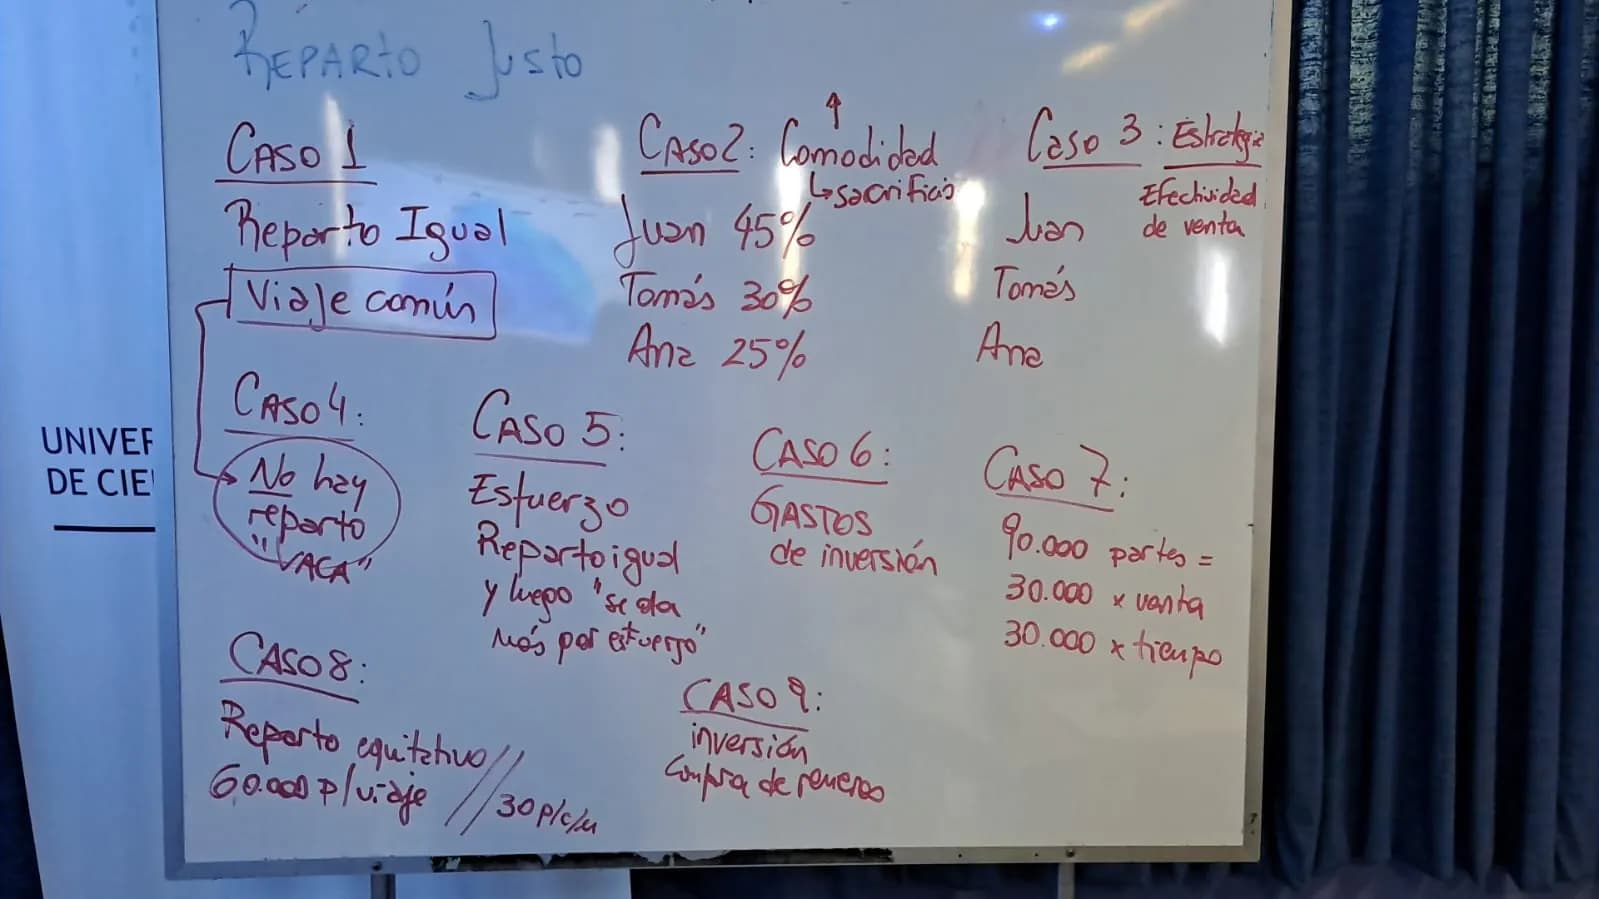 REPARTO JUSTO
CASO 1
Reparto Igual
Viaje común
CASO 2: Comodidad
↳ sacrificio
Juan 45%
Tomás 30%
Ana 25%
Caso 3: Estrategia
Efectividad
de venta
Juan
Tomás
Ana
CASO 4:
No hay
reparto
"VACA"
CASO 5:
Esfuerzo
Reparto igual
y luego "se da
más por esfuerzo"
CASO 6:
GASTOS
de inversión
CASO 7:
90.000 partes =
30.000 x venta
30.000 x tiempo
CASO 8:
Reparto equitativo //
60.000 p/viaje // 30 p/c/u
CASO 9:
inversión
Compra de remeras
UNIVER
DE CIE